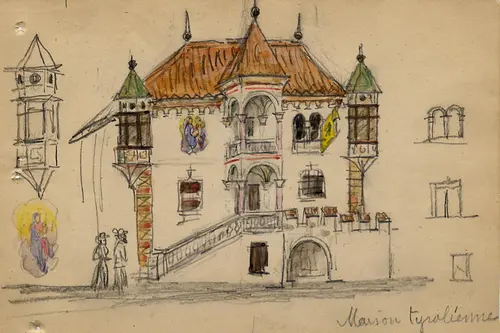 Maison tyrolienne